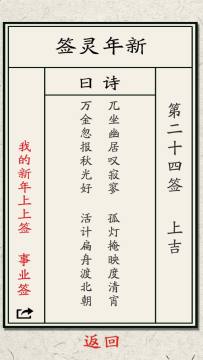 新年灵签
第二十四签 上吉
诗曰
兀坐幽居叹寂寥 孤灯掩映度清宵
万金忽报秋光好 活计扁舟渡北朝
我的新年上上签 事业签
返回